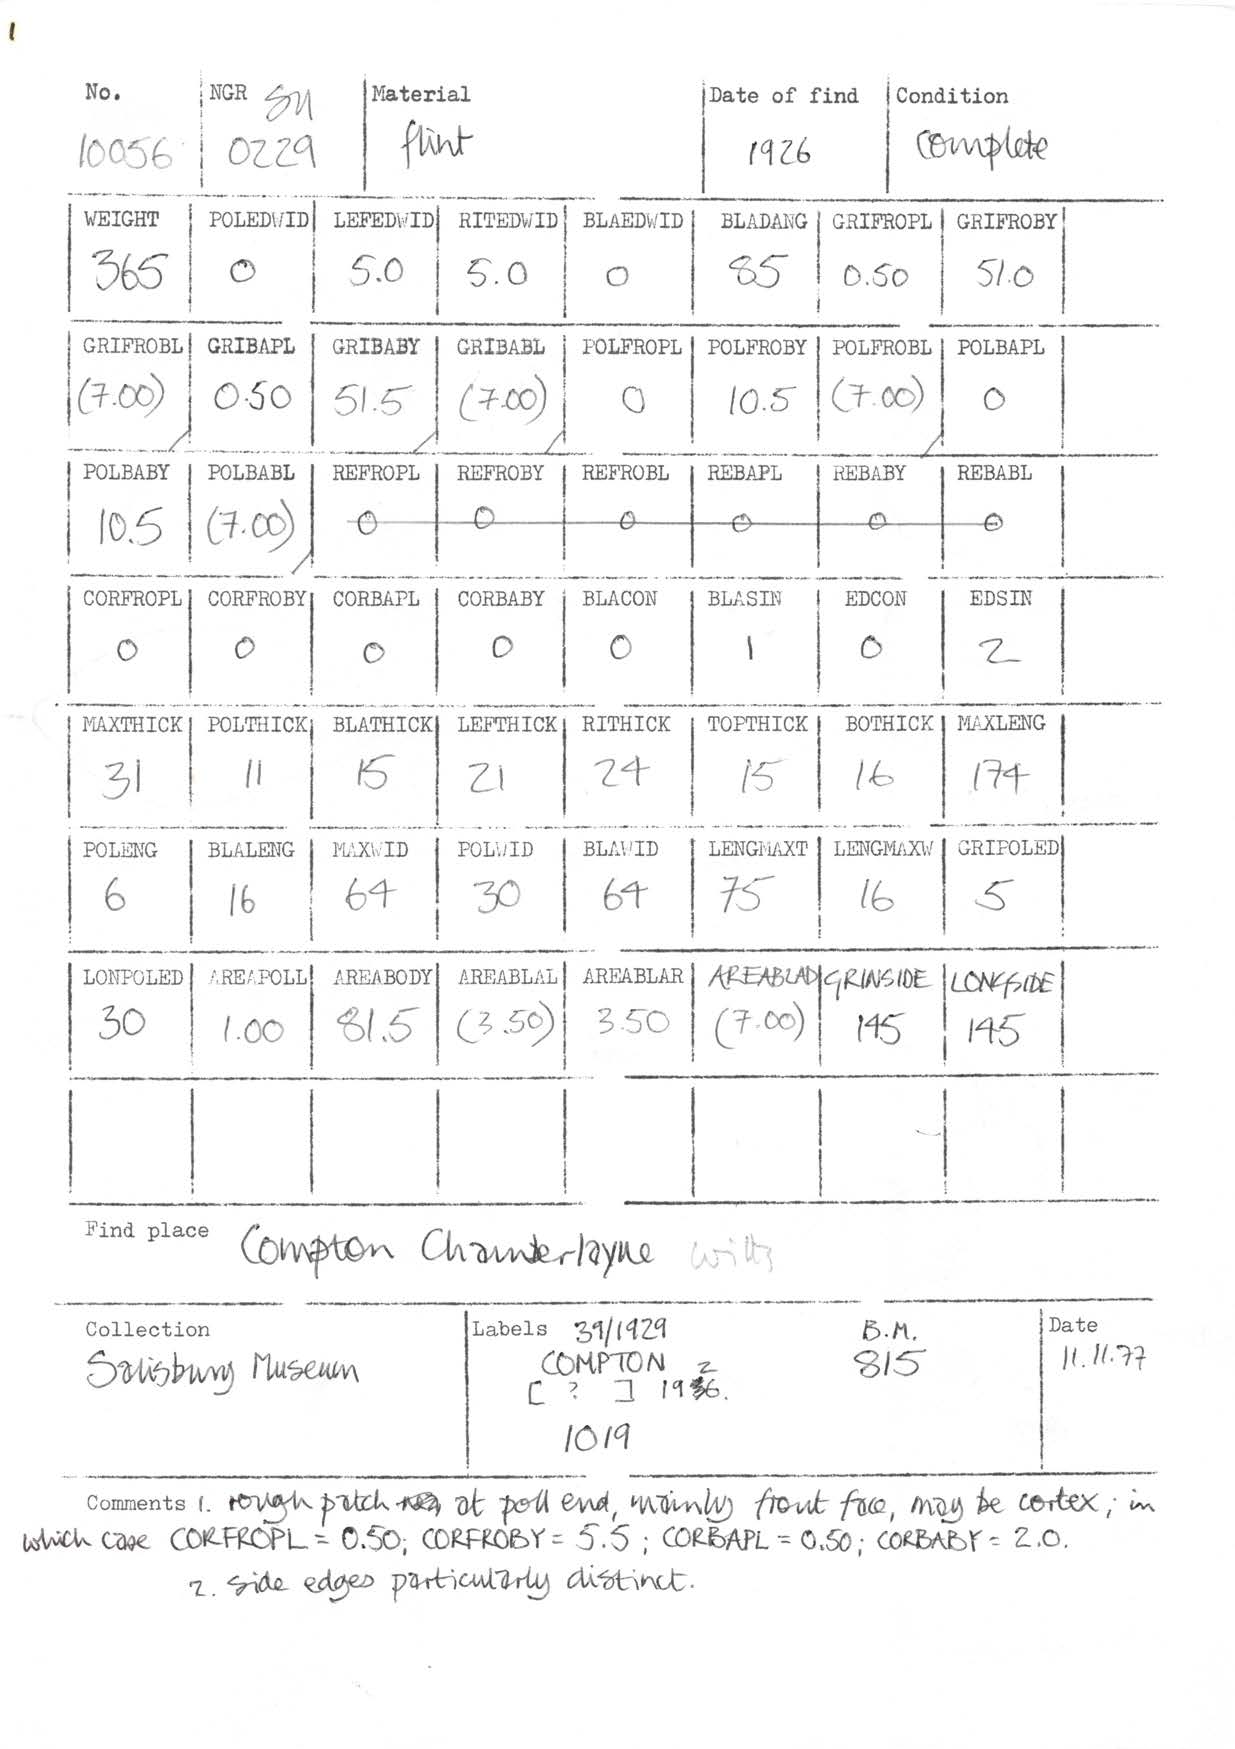 1
No. NGR SU Material Date of find Condition
10056 0229 flint 1926 complete
WEIGHT POLEDWID LEFEDWID RITEDWID BLAEDWID BLADANG GRIFROPL GRIFROBY
365 0 5.0 5.0 0 85 0.50 51.0
GRIFROBL GRIBAPL GRIBABY GRIBABL POLFROPL POLFROBY POLFROBL POLBAPL
(7.00) 0.50 51.5 (7.00) 0 10.5 (7.00) 0
POLBABY POLBABL REFROPL REFROBY REFROBL REBAPL REBABY REBABL
10.5 (7.00) 0 0 0 0 0 0
CORFROPL CORFROBY CORBAPL CORBABY BLACON BLASIN EDCON EDSIN
0 0 0 0 0 1 0 2
MAXTHICK POLTHICK BLATHICK LEFTHICK RITHICK TOPTHICK BOTHICK MAXLENG
31 11 15 21 24 15 16 174
POLENG BLALENG MAXWID POLWID BLAWID LENGMAXT LENGMAXW GRIPOLED
6 16 64 30 64 75 16 5
LONPOLED AREAPOLL AREABODY AREABLAL AREABLAR AREABLAD GRINSIDE LONGSIDE
30 1.00 81.5 (3.50) 3.50 (7.00) 145 145
Find place Compton Chamberlayne Wilts
Collection Labels 39/1929 B.M. Date
Salisbury Museum COMPTON 815 11.11.77
[ ? ] 1926.
1019
Comments 1. rough patch at poll end, mainly front face, may be cortex; in
which case CORFROPL = 0.50; CORFROBY = 5.5; CORBAPL = 0.50; CORBABY = 2.0.
2. side edges particularly distinct.